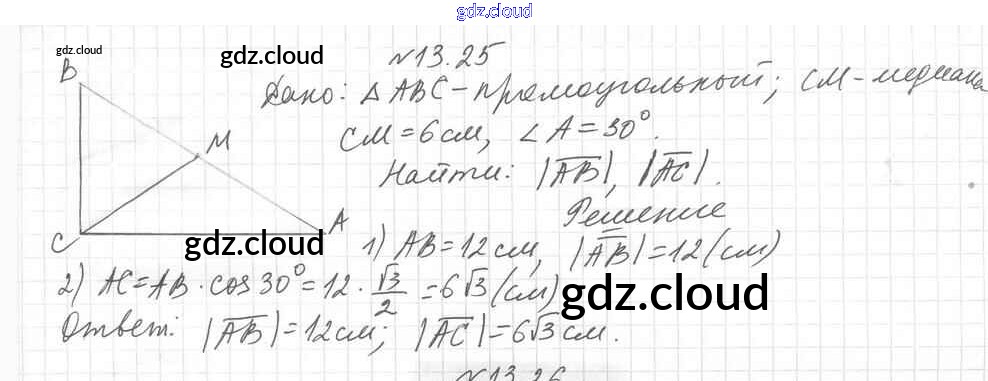 gdz.cloud
gdz.cloud
gdz.cloud
№13.25
B
Дано: △ABC – прямоугольный; CM – медиана
CM = 6 см, ∠A = 30°.
M
Найти: |AB|, |AC|.
Решение
C
A
gdz.cloud
1) AB = 12 см, |AB| = 12 (см)
2) AC = AB · cos 30° = 12 · √3/2 = 6√3 (см)
gdz.cloud
Ответ: |AB| = 12 см; |AC| = 6√3 см.
№13.26